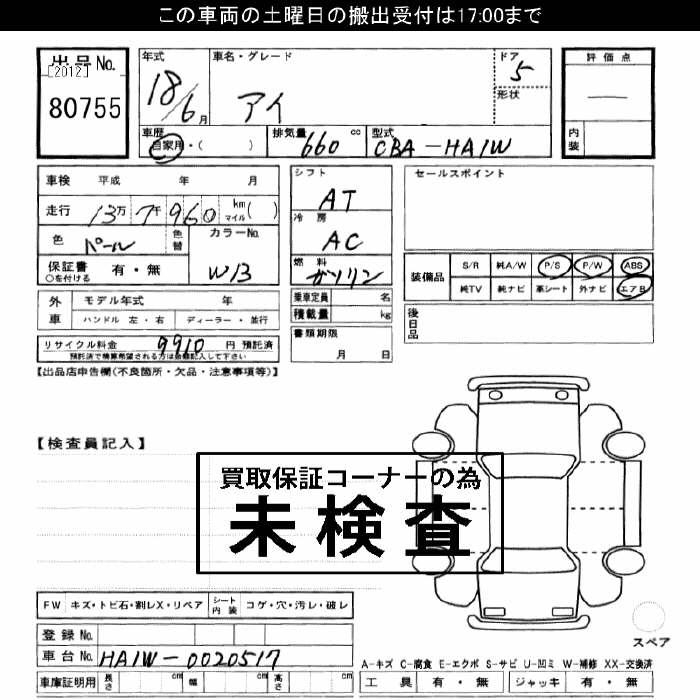 この車両の土曜日の搬出受付は17:00まで
出品No.
[2012]
80755
年式
18/6月
車名・グレード
アイ
ドア
5
形状
評価点
—
内装
車歴
自家用・( )
排気量
660 cc
型式
CBA-HA1W
車検 平成 年 月
走行 13万7千960 km マイル( )
色 パール
色替
カラーNo.
W13
保証書 有・無
○を付ける
シフト
AT
冷房
AC
燃料
ガソリン
セールスポイント
装備品 S/R 純A/W P/S P/W ABS
純TV 純ナビ 革シート 外ナビ エアB
外車 モデル年式 年
ハンドル 左・右 ディーラー・並行
乗車定員 名
積載量 kg
後日品
リサイクル料金 9910 円 預託済
預託済で精算希望される方は金額記入して下さい
書類期限
月 日
【出品店申告欄(不良箇所・欠品・注意事項等)】
【検査員記入】
買取保証コーナーの為
未検査
FW キズ・トビ石・割レX・リペア シート内装 コゲ・穴・汚レ・破レ
スペア
登録No.
車台No. HA1W-0020517
A-キズ C-腐食 E-エクボ S-サビ U-凹ミ W-補修 XX-交換済
車庫証明用 長さ cm 幅 cm 高さ cm
工具 有・無 ジャッキ 有・無